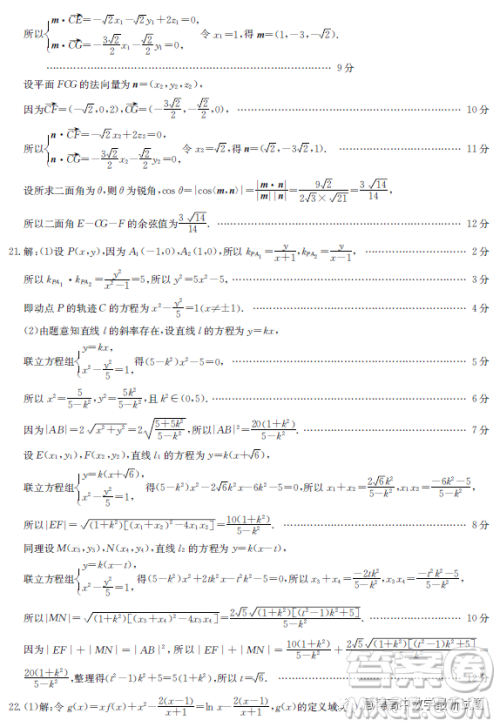 所以{m·CE=-√2x₁-√2y₁+2z₁=0, m·CG=-3√2/2 x₁-√2/2 y₁=0, 令 x₁=1,得 m=(1,-3,-√2).
9分
设平面FCG的法向量为 n=(x₂,y₂,z₂),
因为CF=(-√2,0,2),CG=(-3√2/2,-√2/2,0), 10分
所以{n·CF=-√2x₂+2z₂=0, n·CG=-3√2/2 x₂-√2/2 y₂=0, 令 x₂=√2,得 n=(√2,-3√2,1). 11分
设所求二面角为θ,则θ为锐角,cos θ=|cos⟨m,n⟩|=|m·n|/|m||n|=9√2/(2√3×√21)=3√14/14,
所以二面角E-CG-F的余弦值为3√14/14. 12分
21.解:(1)设P(x,y),因为A₁(-1,0),A₂(1,0),所以 k_PA₁=y/(x+1),k_PA₂=y/(x-1), 2分
所以 k_PA₁·k_PA₂=y²/(x²-1)=5,所以 y²=5x²-5, 3分
即动点P的轨迹C的方程为 x²-y²/5=1(x≠±1). 4分
(2)由题意知直线l的斜率存在,设直线l的方程为 y=kx,
联立方程组{y=kx, x²-y²/5=1, 得(5-k²)x²-5=0, 5分
所以 x²=5/(5-k²),y²=5k²/(5-k²),且 k²∈(0,5). 6分
因为|AB|=2√(x²+y²)=2√((5+5k²)/(5-k²)),所以|AB|²=20(1+k²)/(5-k²). 7分
设E(x₁,y₁),F(x₂,y₂),直线l₁的方程为 y=k(x+√6),
联立方程组{y=k(x+√6), x²-y²/5=1, 得(5-k²)x²-2√6k²x-6k²-5=0,所以 x₁+x₂=2√6k²/(5-k²),x₁x₂=(-6k²-5)/(5-k²),
所以|EF|=√((1+k²)[(x₁+x₂)²-4x₁x₂])=10(1+k²)/(5-k²). 8分
同理设M(x₃,y₃),N(x₄,y₄),直线l₂的方程为 y=k(x-t),
联立方程组{y=k(x-t), x²-y²/5=1, 得(5-k²)x²+2tk²x-t²k²-5=0,所以 x₃+x₄=-2tk²/(5-k²),x₃x₄=(-t²k²-5)/(5-k²),
所以|MN|=√((1+k²)[(x₃+x₄)²-4x₃x₄])=2√5√((1+k²)[(t²-1)k²+5])/(5-k²). 10分
因为|EF|+|MN|=|AB|²,所以|EF|+|MN|=10(1+k²)/(5-k²)+2√5√((1+k²)[(t²-1)k²+5])/(5-k²)
20(1+k²)/(5-k²),整理得(t²-1)k²+5=5(1+k²),所以 t=√6.
22.(1)解:令 g(x)=xf(x)+x²-2(x-1)/(x+1)=ln x-2(x-1)/(x+1),g(x)的定义域